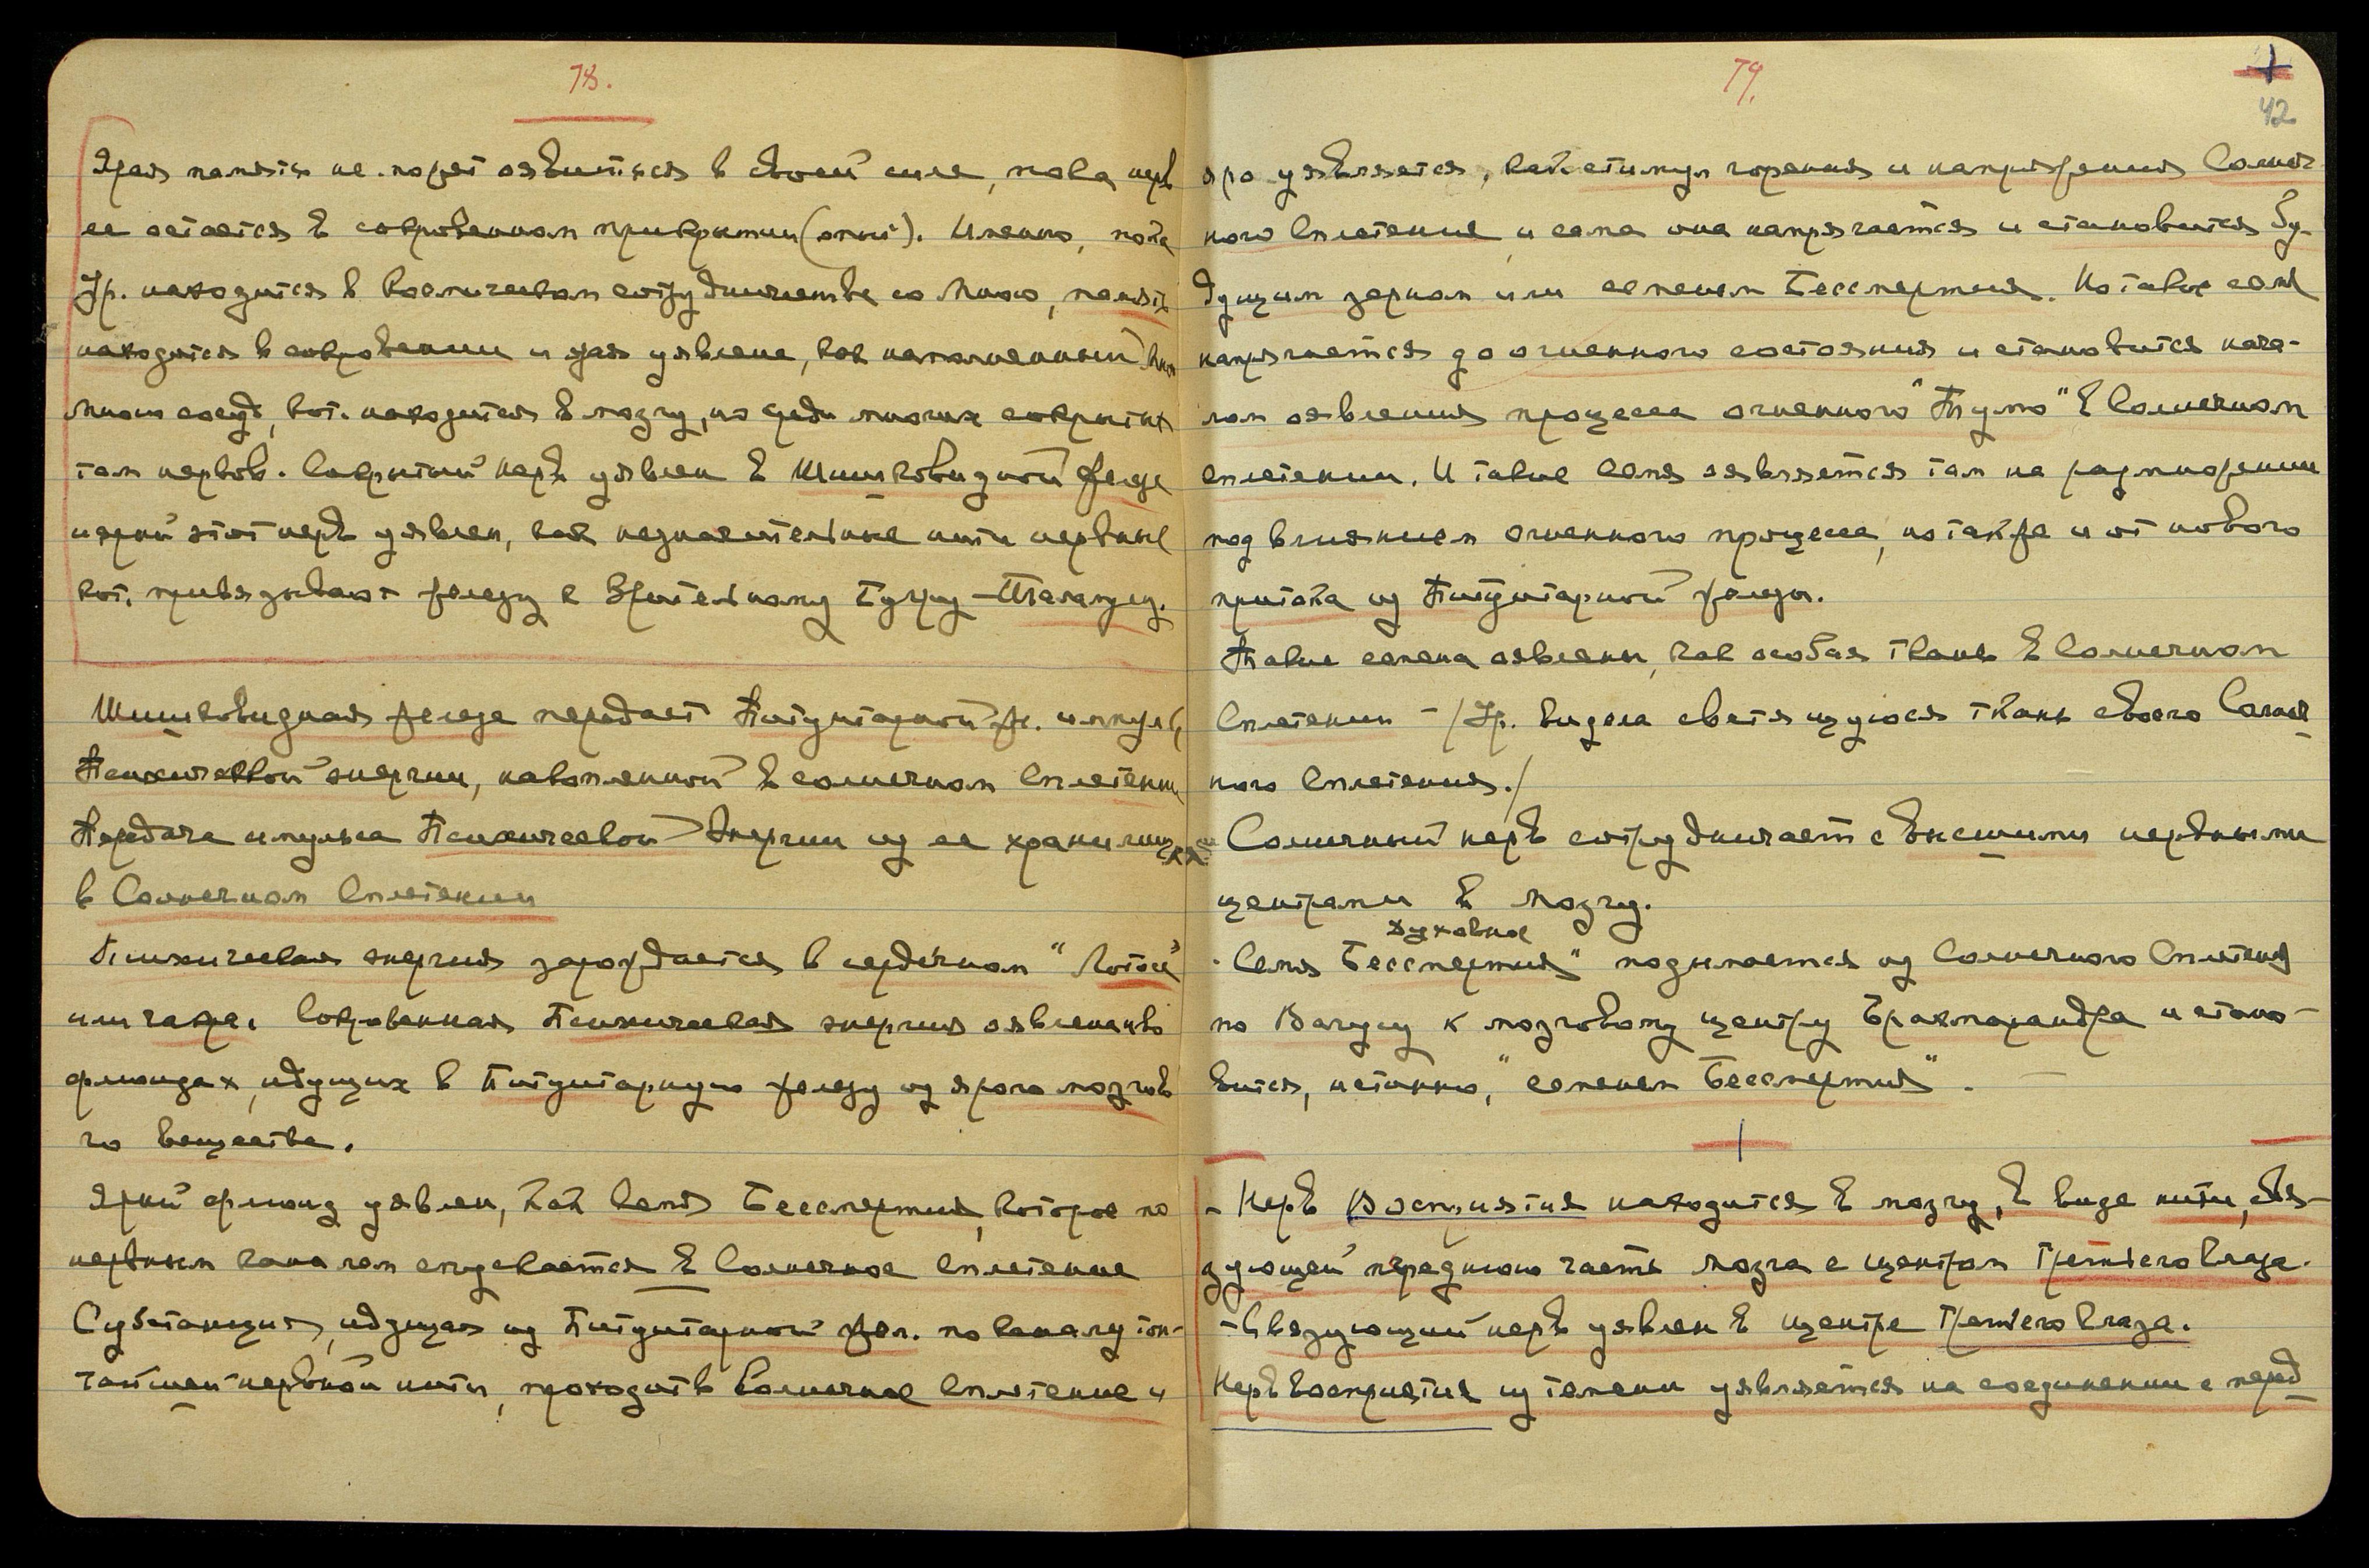 78.
Ярая память не может оявиться в своей силе, пока нерв
ее остается в сокровенном прикрытии (опий). Именно, пока
Ур. находится в космическом сотрудничестве со Мною, память
находится в сокровении и яро уявлена, как наполненный
Мною сосуд, кот. находится в мозгу, но среди многих сокрытых
там нервов. Сокрытый нерв уявлен в Шишковидной железе
и ярый этот нерв уявлен, как незначительные нити нервные
кот. привязывают железу к Зрительному Бугру – Таламусу.
Шишковидная железа передает Питуитарной ж. импульс
Психической энергии, накопленной в солнечном Сплетении
Передача импульса Психической Энергии из ее хранилища
в Солнечном Сплетении
Психическая энергия зарождается в сердечном "Лотосе"
или чаше. Сокровенная Психическая энергия оявлена во
флюидах, идущих в Питуитарную железу из ярого мозгов
го вещества.
Ярый флюид уявлен, как Семя Бессмертия, которое по
нервным каналам спускается в Солнечное Сплетение
Субстанция, идущая из Питуитарной жел. по каналу тон-
чайшей нервной нити, проходит в Солнечное Сплетение и
79.
42
яро уявляется, как стимул горения и напряжения Солнеч-
ного Сплетения и сама она напрягается и становится бу-
дущим зерном или семенем Бессмертия. Но такое семя
напрягается до огненного состояния и становится нача-
лом оявления процесса огненного "Тумо" в Солнечном
Сплетении. И такое Семя оявляется там на размножении
под влиянием огненного процесса, но также и от нового
притока из Питуитарной железы.
Такие семена оявлены, как особая ткань в Солнечном
Сплетении – /Ур. видела светящуюся ткань своего Солнеч-
ного Сплетения./
Солнечный нерв сотрудничает с высшими нервными
центрами в Мозгу.
духовное
"Семя Бессмертия" подымается из Солнечного Сплетения
по Вагусу к мозговому центру Брахмарандра и стано-
вится, истинно, "семенем Бессмертия".
- Нерв Восприятия находится в мозгу, в виде нити, свя-
зующей переднюю часть мозга с центром Третьего Глаза.
- Связующий нерв уявлен в центре Третьего Глаза.
Нерв восприятия из темени уявляется на соединении с перед